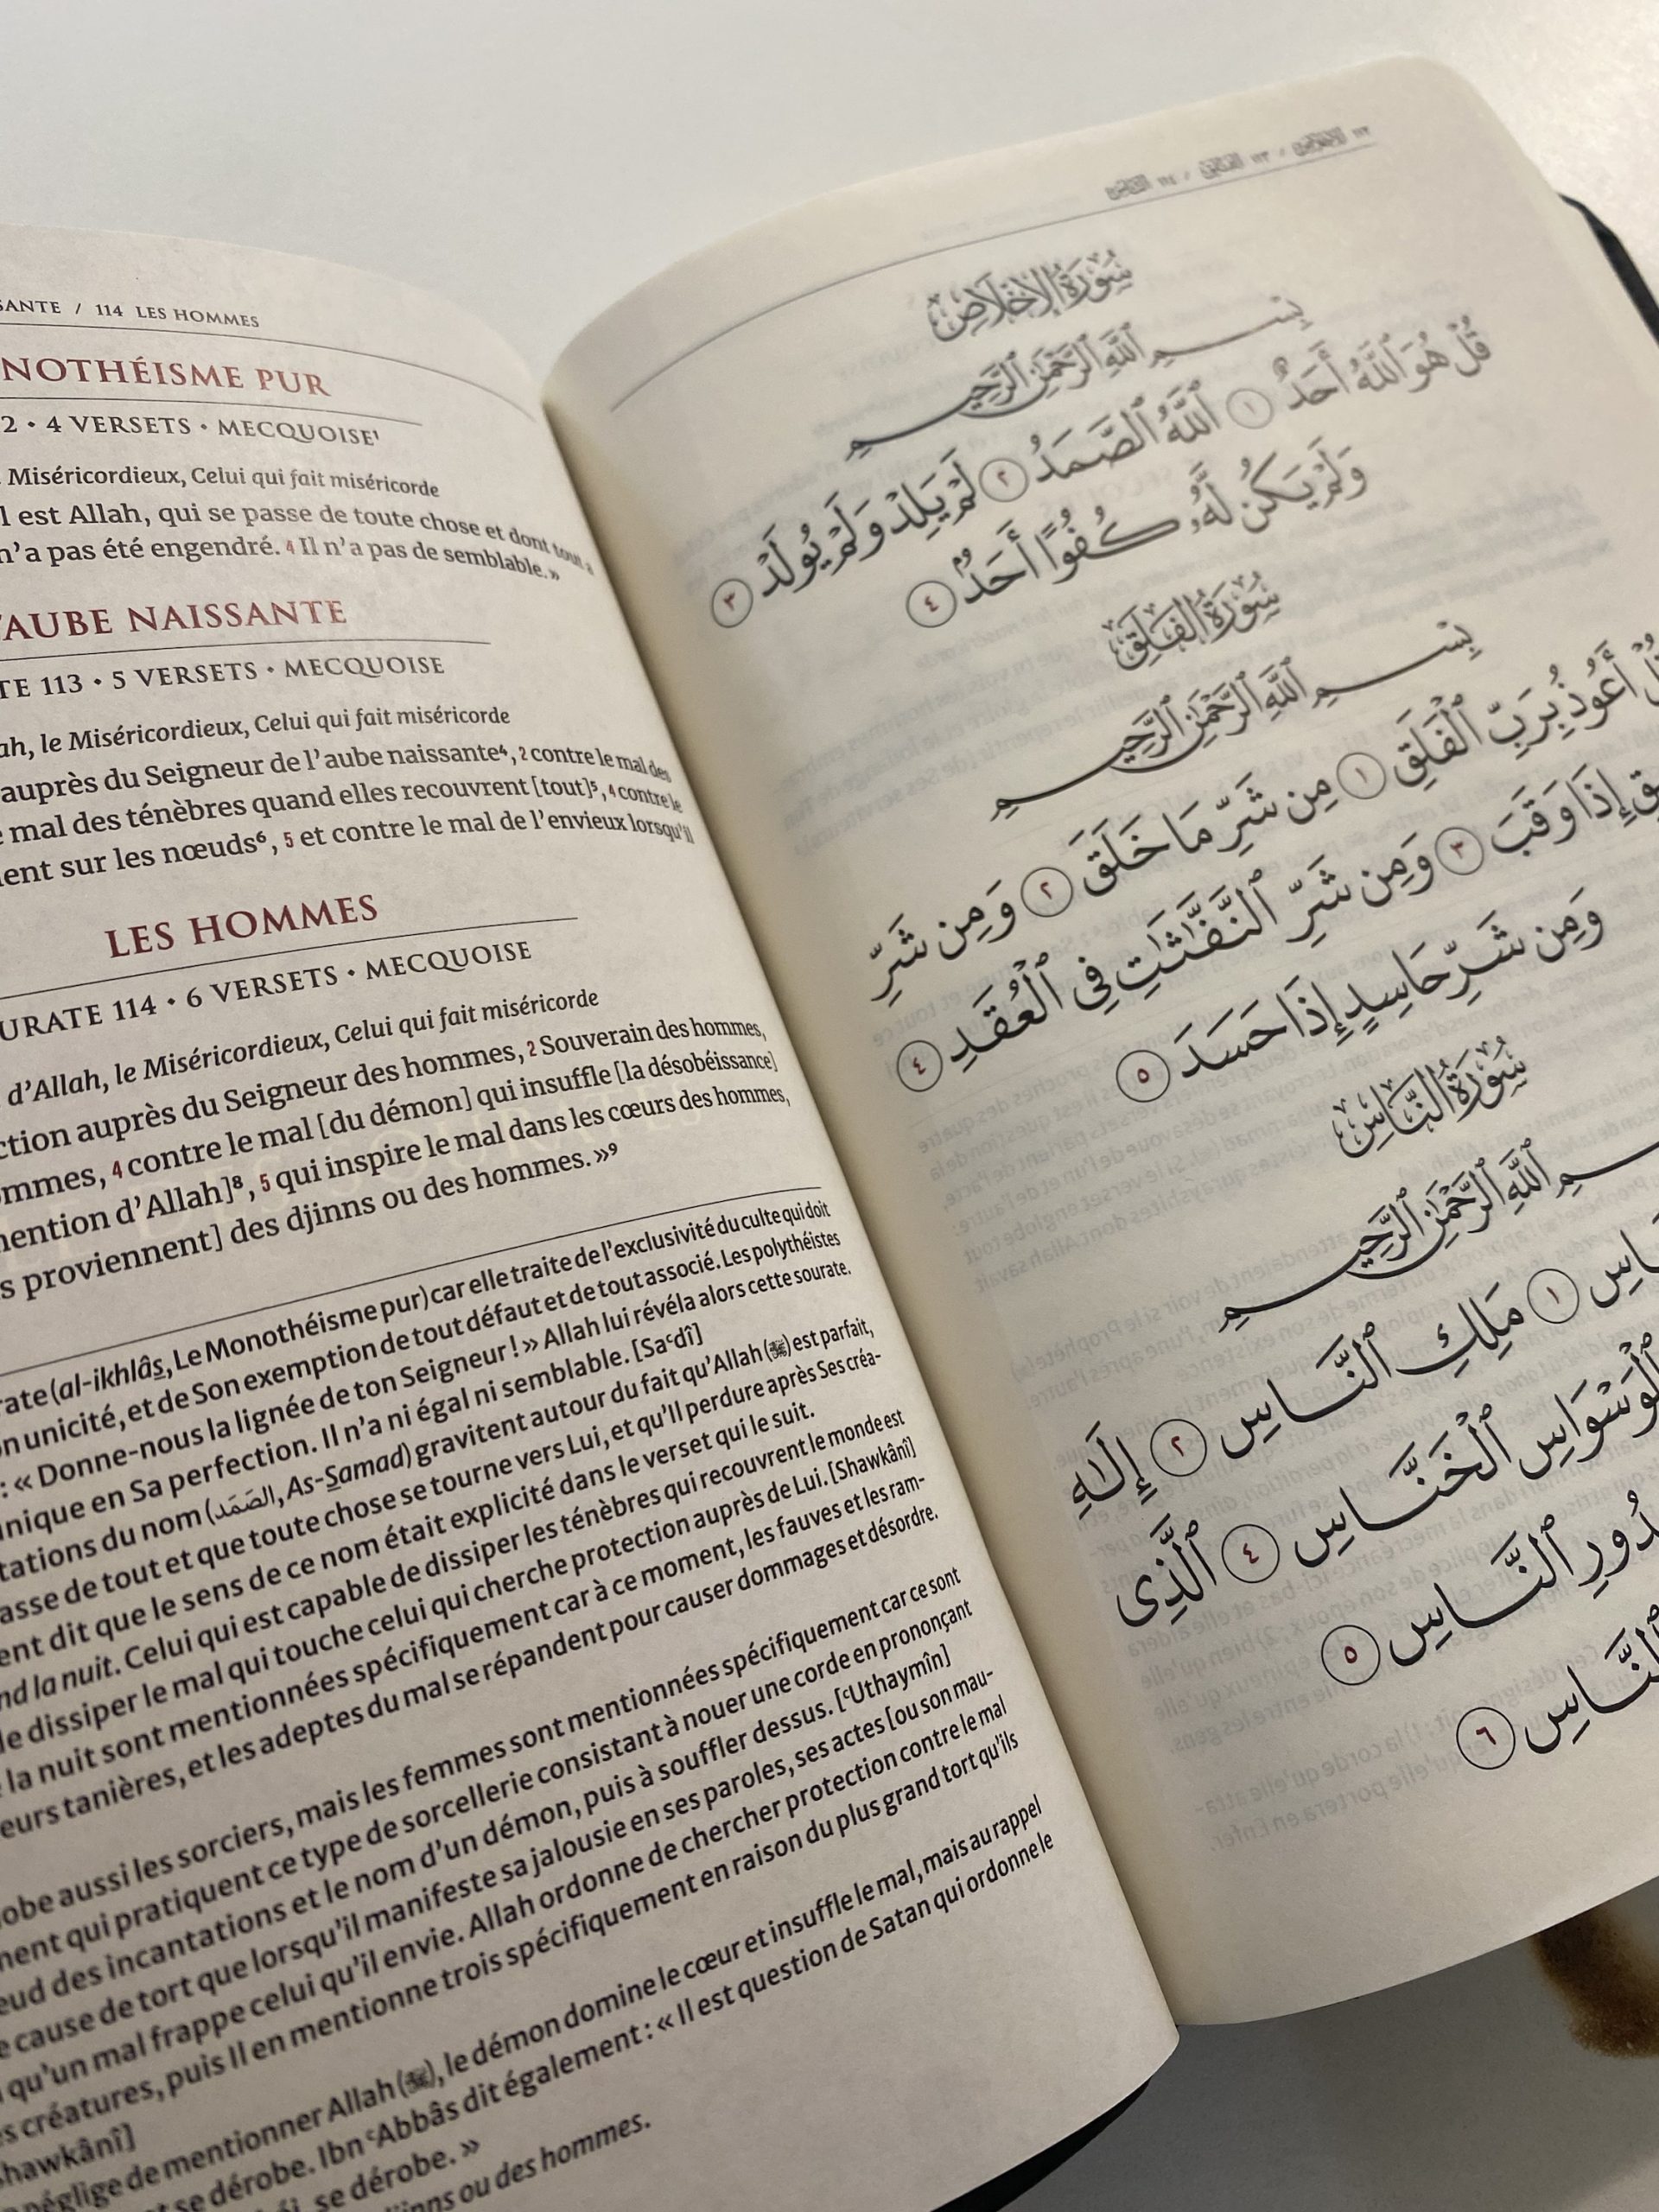 SANTE / 114 LES HOMMES
NOTHÉISME PUR
2 • 4 VERSETS • MECQUOISE¹
Miséricordieux, Celui qui fait miséricorde
l est Allah, qui se passe de toute chose et dont tout a
n’a pas été engendré. 4 Il n’a pas de semblable. »
’AUBE NAISSANTE
TE 113 • 5 VERSETS • MECQUOISE
ah, le Miséricordieux, Celui qui fait miséricorde
auprès du Seigneur de l’aube naissante⁴, 2 contre le mal des
e mal des ténèbres quand elles recouvrent [tout]⁵, 4 contre le
ent sur les nœuds⁶, 5 et contre le mal de l’envieux lorsqu’il
LES HOMMES
URATE 114 • 6 VERSETS • MECQUOISE
d’Allah, le Miséricordieux, Celui qui fait miséricorde
ction auprès du Seigneur des hommes, 2 Souverain des hommes,
ommes, 4 contre le mal [du démon] qui insuffle [la désobéissance]
mention d’Allah]⁸, 5 qui inspire le mal dans les cœurs des hommes,
s proviennent] des djinns ou des hommes. »⁹
rate (al-ikhlâs, Le Monothéisme pur) car elle traite de l’exclusivité du culte qui doit
on unicité, et de Son exemption de tout défaut et de tout associé. Les polythéistes
: « Donne-nous la lignée de ton Seigneur ! » Allah lui révéla alors cette sourate.
unique en Sa perfection. Il n’a ni égal ni semblable. [Saᶜdî]
tations du nom (الصَّمَد, As-Samad) gravitent autour du fait qu’Allah (ﷻ) est parfait,
asse de tout et que toute chose se tourne vers Lui, et qu’Il perdure après Ses créa-
ent dit que le sens de ce nom était explicité dans le verset qui le suit.
nd la nuit. Celui qui est capable de dissiper les ténèbres qui recouvrent le monde est
de dissiper le mal qui touche celui qui cherche protection auprès de Lui. [Shawkânî]
la nuit sont mentionnées spécifiquement car à ce moment, les fauves et les ram-
eurs tanières, et les adeptes du mal se répandent pour causer dommages et désordre.
lobe aussi les sorciers, mais les femmes sont mentionnées spécifiquement car ce sont
ment qui pratiquent ce type de sorcellerie consistant à nouer une corde en prononçant
eud des incantations et le nom d’un démon, puis à souffler dessus. [ᶜUthaymîn]
e cause de tort que lorsqu’il manifeste sa jalousie en ses paroles, ses actes [ou son mau-
qu’un mal frappe celui qu’il envie. Allah ordonne de chercher protection contre le mal
s créatures, puis Il en mentionne trois spécifiquement en raison du plus grand tort qu’ils
hawkânî]
néglige de mentionner Allah (ﷻ), le démon domine le cœur et insuffle le mal, mais au rappel
se dérobe. Ibn ᶜAbbâs dit également : « Il est question de Satan qui ordonne le
, se dérobe. »
jinns ou des hommes.
١١٢ الإخلاص / ١١٣ الفلق / ١١٤ الناس
سُورَةُ الإِخْلَاصِ
بِسْمِ اللَّهِ الرَّحْمَٰنِ الرَّحِيمِ
قُلْ هُوَ ٱللَّهُ أَحَدٌ ١ ٱللَّهُ ٱلصَّمَدُ ٢ لَمْ يَلِدْ وَلَمْ يُولَدْ ٣
وَلَمْ يَكُن لَّهُۥ كُفُوًا أَحَدٌۢ ٤
سُورَةُ الفَلَقِ
بِسْمِ اللَّهِ الرَّحْمَٰنِ الرَّحِيمِ
قُلْ أَعُوذُ بِرَبِّ ٱلْفَلَقِ ١ مِن شَرِّ مَا خَلَقَ ٢ وَمِن شَرِّ
ق إِذَا وَقَبَ ٣ وَمِن شَرِّ ٱلنَّفَّٰثَٰتِ فِى ٱلْعُقَدِ ٤
وَمِن شَرِّ حَاسِدٍ إِذَا حَسَدَ ٥
سُورَةُ النَّاسِ
سْمِ اللَّهِ الرَّحْمَٰنِ الرَّحِيمِ
اسِ ١ مَلِكِ ٱلنَّاسِ ٢ إِلَٰهِ
ٱلْوَسْوَاسِ ٱلْخَنَّاسِ ٤ ٱلَّذِى
دُورِ ٱلنَّاسِ ٥
ٱلنَّاسِ ٦